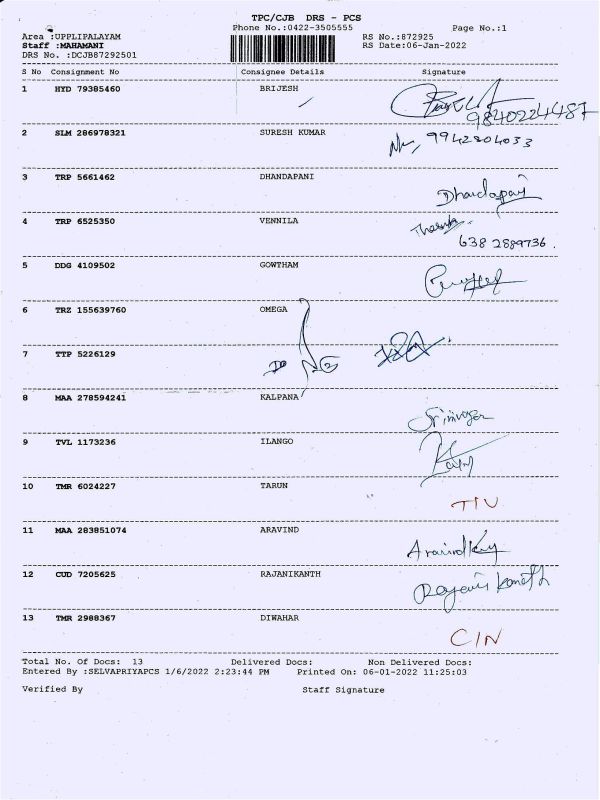 TPC/CJB DRS - PCS
Phone No.:0422-3505555 Page No.:1
Area :UPPLIPALAYAM RS No.:872925
Staff :MAHAMANI RS Date:06-Jan-2022
DRS No. :DCJB87292501
S No Consignment No Consignee Details Signature
1 HYD 79385460 BRIJESH
9840224487
2 SLM 286978321 SURESH KUMAR 9942804033
3 TRP 5661462 DHANDAPANI
Dhandapani
4 TRP 6525350 VENNILA
638 2889736.
5 DDG 4109502 GOWTHAM
6 TRZ 155639760 OMEGA
7 TTP 5226129
8 MAA 278594241 KALPANA
Srinivasan
9 TVL 1173236 ILANGO
10 TMR 6024227 TARUN
11 MAA 283851074 ARAVIND
12 CUD 7205625 RAJANIKANTH
13 TMR 2988367 DIWAHAR
CIN
Total No. Of Docs: 13 Delivered Docs: Non Delivered Docs:
Entered By :SELVAPRIYAPCS 1/6/2022 2:23:44 PM Printed On: 06-01-2022 11:25:03
Verified By Staff Signature